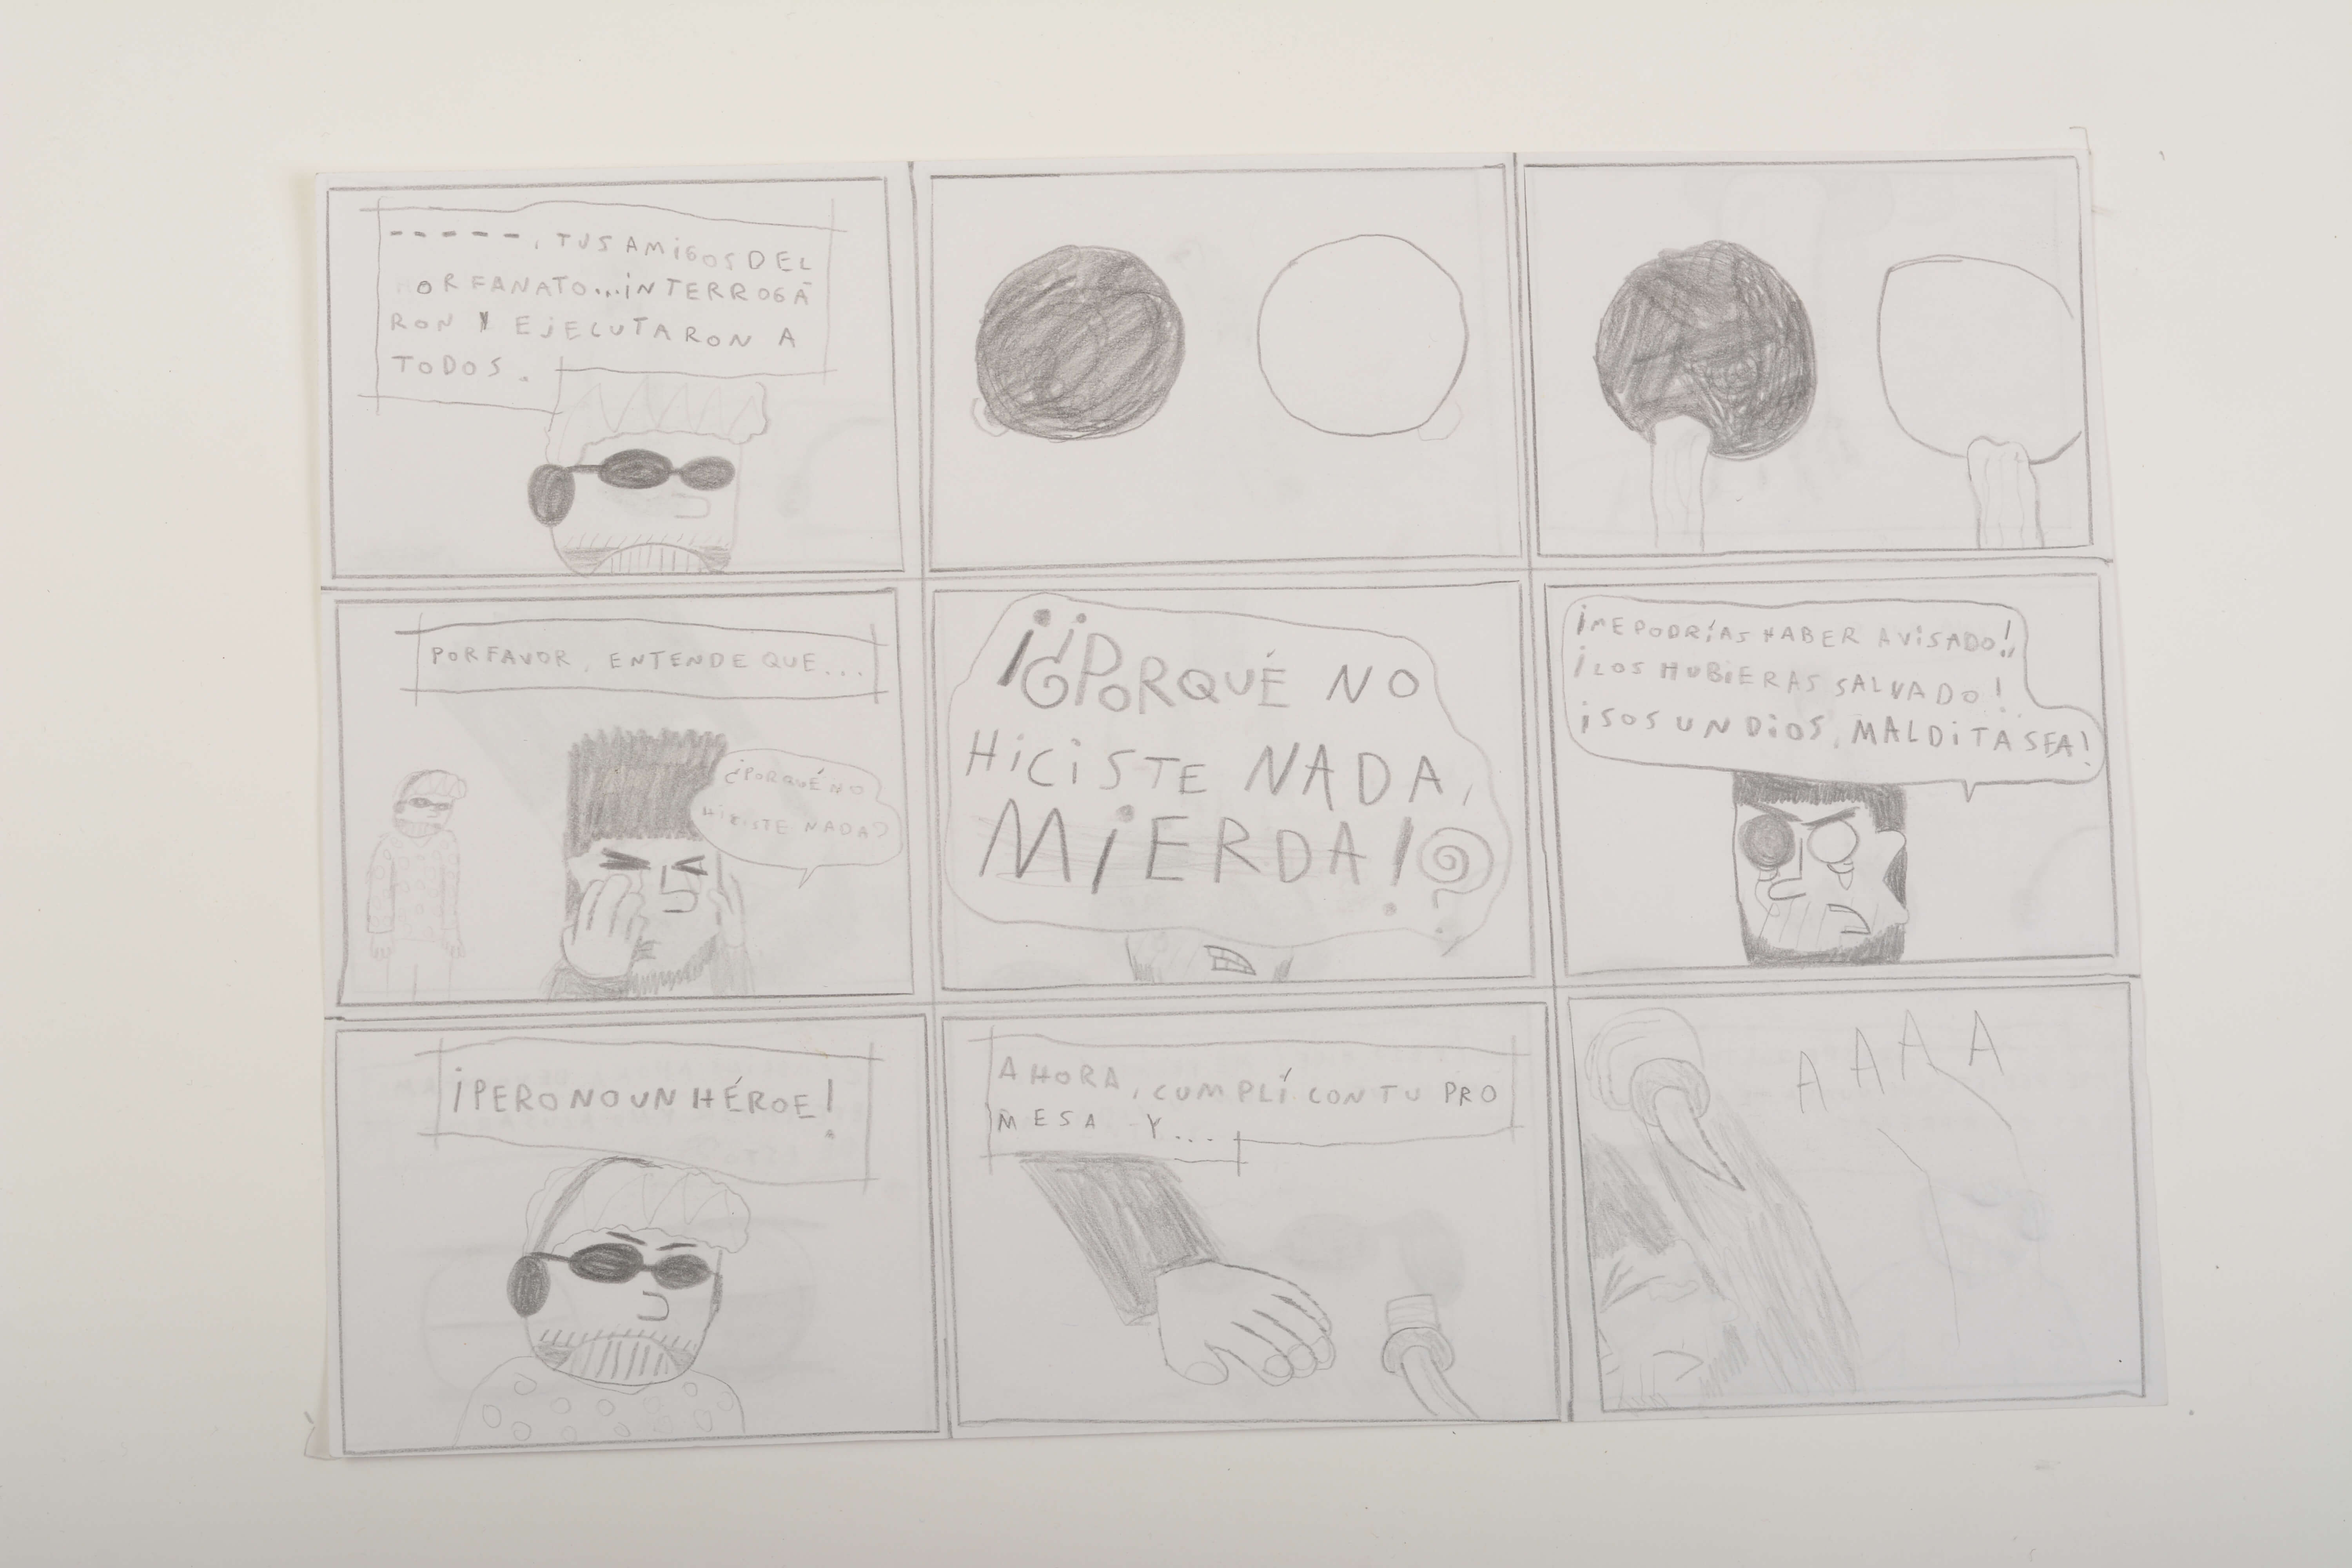 -----, TUS AMIGOS DEL
ORFANATO...INTERROGA
RON Y EJECUTARON A
TODOS.
POR FAVOR, ENTENDE QUE...
¿PORQUÉ NO
HICISTE NADA?
¡¿PORQUÉ NO
HICISTE NADA,
MIERDA!?
¡ME PODRÍAS HABER AVISADO!
¡LOS HUBIERAS SALVADO!
¡SOS UN DIOS, MALDITA SEA!
¡PERO NO UN HÉROE!
AHORA, CUMPLÍ CON TU PRO
MESA Y...
A A A A